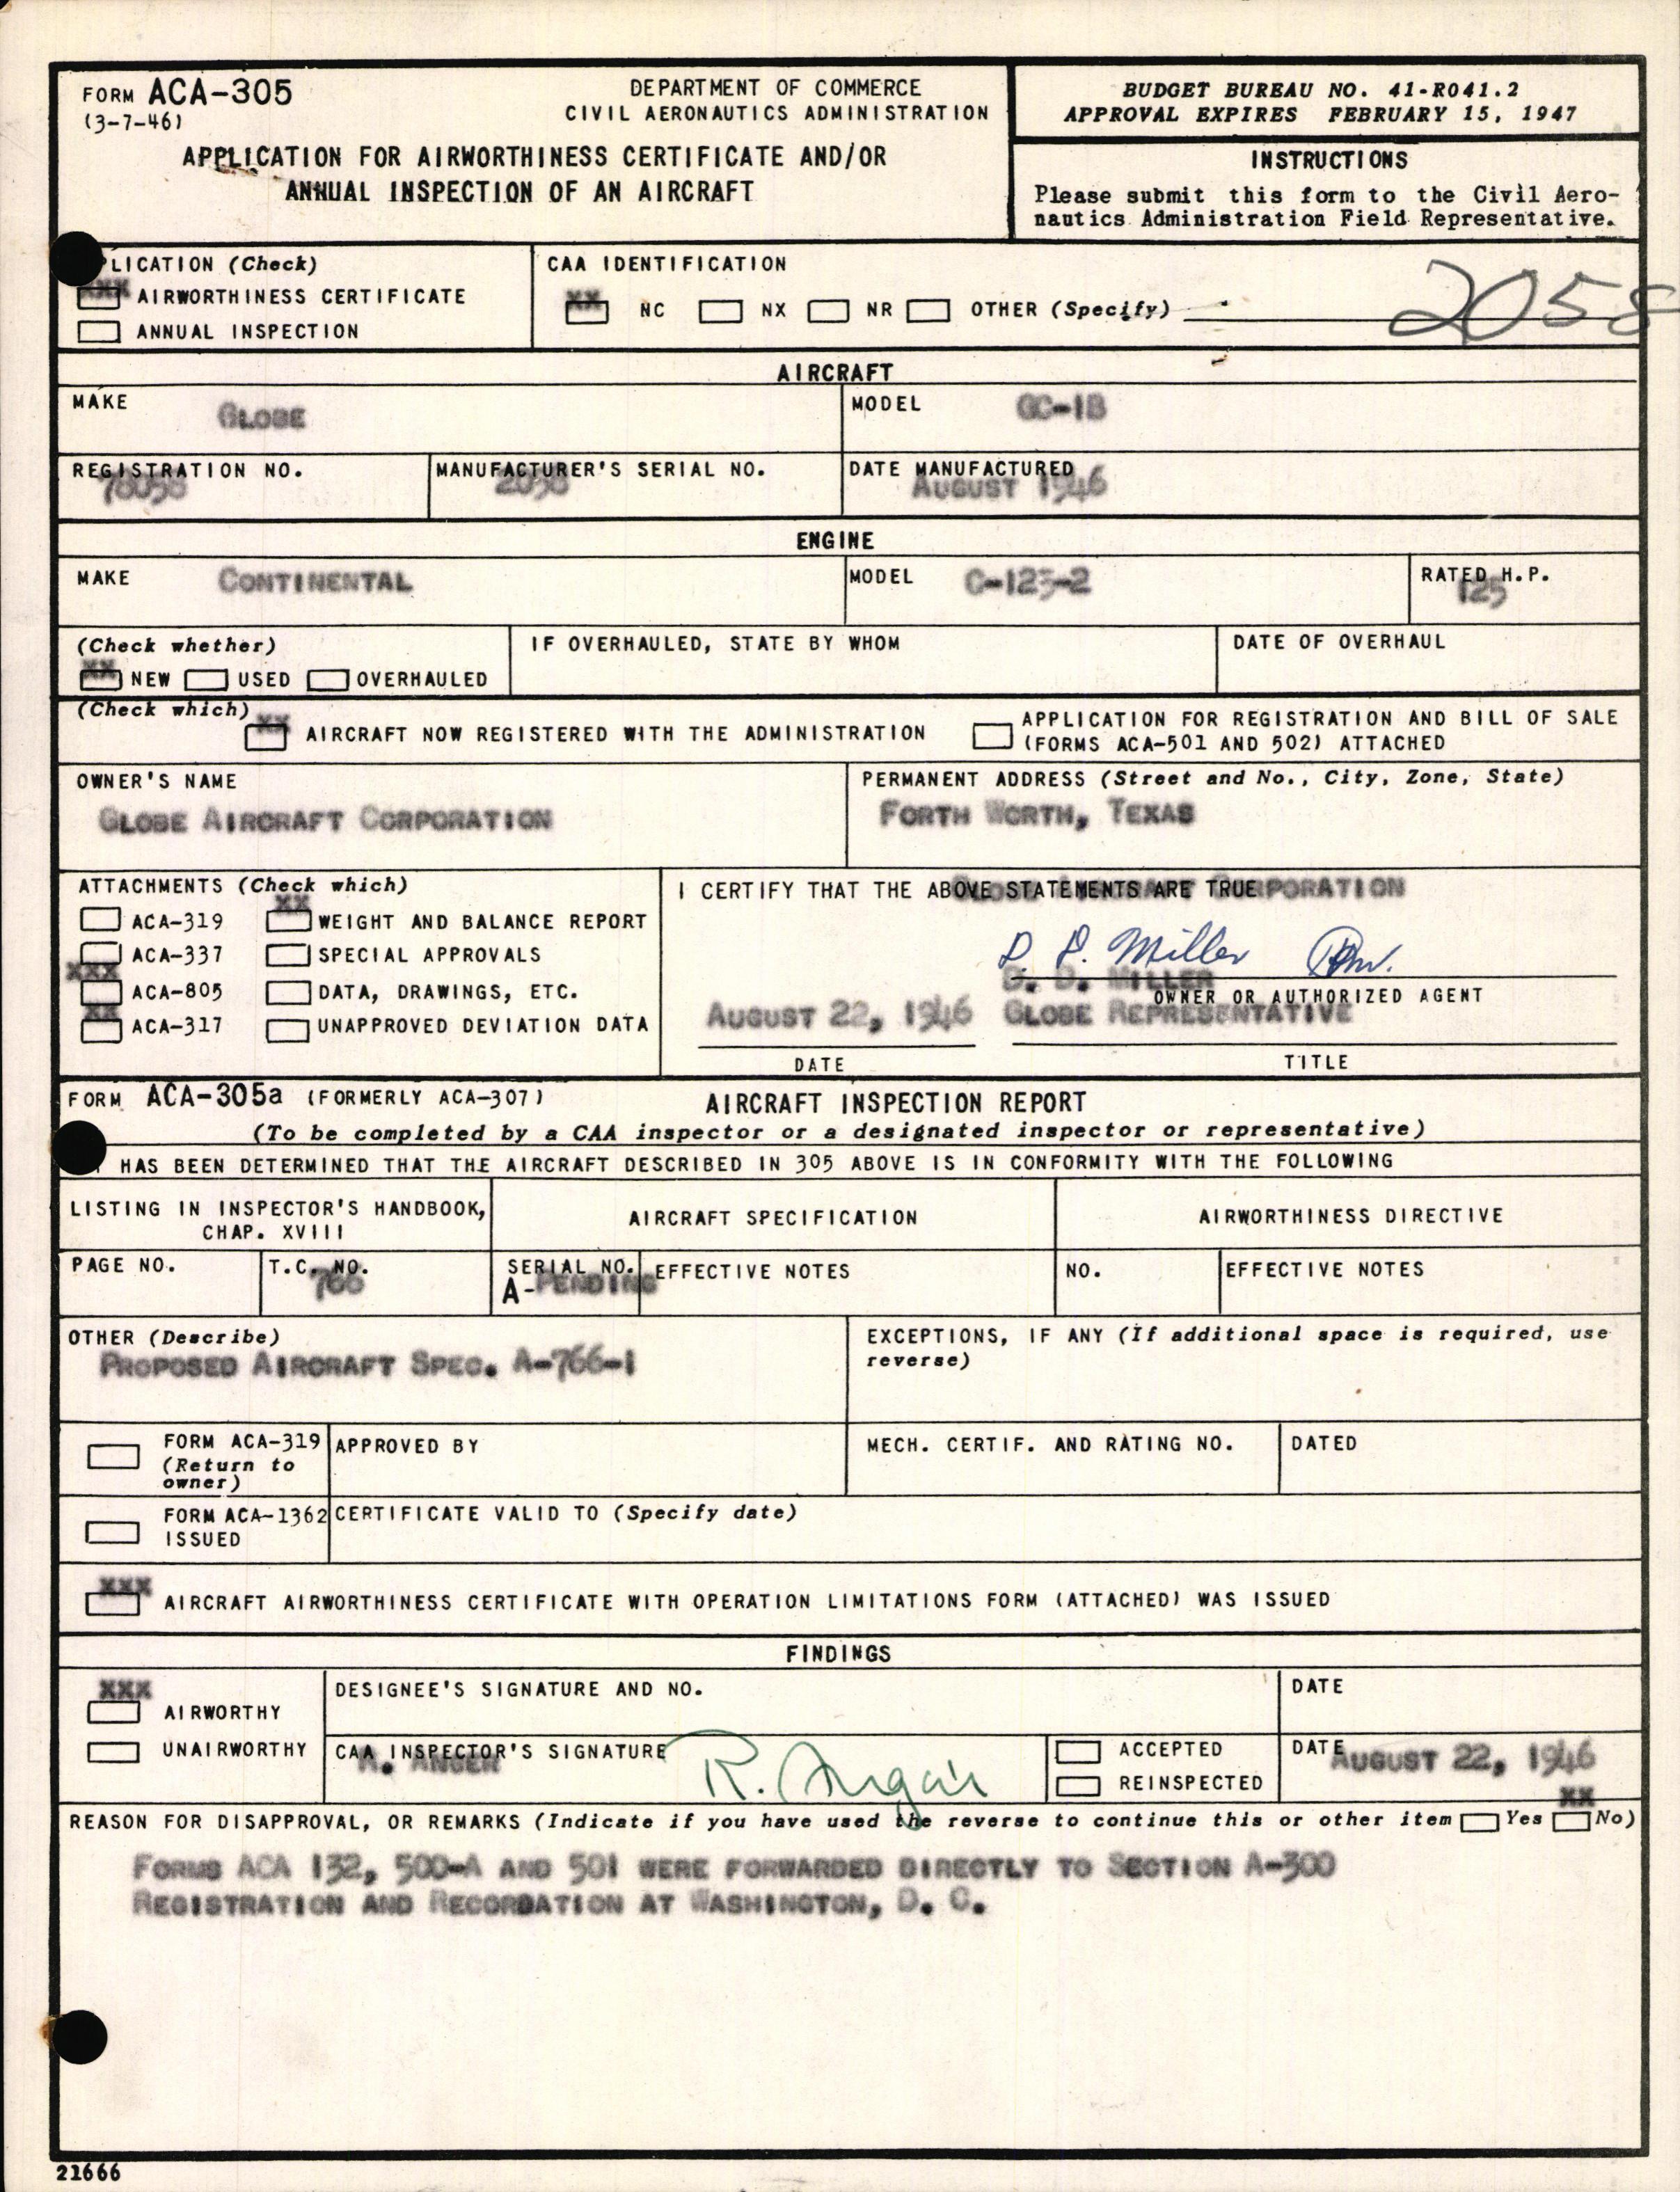 FORM ACA-305
(3-7-46)
DEPARTMENT OF COMMERCE
CIVIL AERONAUTICS ADMINISTRATION
APPLICATION FOR AIRWORTHINESS CERTIFICATE AND/OR
ANNUAL INSPECTION OF AN AIRCRAFT
BUDGET BUREAU NO. 41-R041.2
APPROVAL EXPIRES FEBRUARY 15, 1947
INSTRUCTIONS
Please submit this form to the Civil Aero-
nautics Administration Field Representative.
PLICATION (Check)
XXX AIRWORTHINESS CERTIFICATE
ANNUAL INSPECTION
CAA IDENTIFICATION
XX NC NX NR OTHER (Specify)
2058
AIRCRAFT
MAKE
GLOBE
MODEL
GC-1B
REGISTRATION NO.
MANUFACTURER'S SERIAL NO.
2058
DATE MANUFACTURED
AUGUST 1946
ENGINE
MAKE
CONTINENTAL
MODEL
C-125-2
RATED H.P.
125
(Check whether)
XX NEW USED OVERHAULED
IF OVERHAULED, STATE BY WHOM
DATE OF OVERHAUL
(Check which)
XX AIRCRAFT NOW REGISTERED WITH THE ADMINISTRATION
APPLICATION FOR REGISTRATION AND BILL OF SALE
(FORMS ACA-501 AND 502) ATTACHED
OWNER'S NAME
GLOBE AIRCRAFT CORPORATION
PERMANENT ADDRESS (Street and No., City, Zone, State)
FORTH WORTH, TEXAS
ATTACHMENTS (Check which)
ACA-319 XX WEIGHT AND BALANCE REPORT
ACA-337 SPECIAL APPROVALS
XXX ACA-805 DATA, DRAWINGS, ETC.
XX ACA-317 UNAPPROVED DEVIATION DATA
I CERTIFY THAT THE ABOVE STATEMENTS ARE TRUE
GLOBE AIRCRAFT CORPORATION
D. D. Miller
D. D. MILLER
OWNER OR AUTHORIZED AGENT
AUGUST 22, 1946
GLOBE REPRESENTATIVE
DATE
TITLE
FORM ACA-305a (FORMERLY ACA-307)
AIRCRAFT INSPECTION REPORT
(To be completed by a CAA inspector or a designated inspector or representative)
HAS BEEN DETERMINED THAT THE AIRCRAFT DESCRIBED IN 305 ABOVE IS IN CONFORMITY WITH THE FOLLOWING
LISTING IN INSPECTOR'S HANDBOOK,
CHAP. XVIII
AIRCRAFT SPECIFICATION
AIRWORTHINESS DIRECTIVE
PAGE NO.
T.C. NO.
766
SERIAL NO.
A-PENDING
EFFECTIVE NOTES
NO.
EFFECTIVE NOTES
OTHER (Describe)
PROPOSED AIRCRAFT SPEC. A-766-1
EXCEPTIONS, IF ANY (If additional space is required, use
reverse)
FORM ACA-319
(Return to
owner)
APPROVED BY
MECH. CERTIF. AND RATING NO.
DATED
FORM ACA-1362
ISSUED
CERTIFICATE VALID TO (Specify date)
XXX AIRCRAFT AIRWORTHINESS CERTIFICATE WITH OPERATION LIMITATIONS FORM (ATTACHED) WAS ISSUED
FINDINGS
XXX
AIRWORTHY
UNAIRWORTHY
DESIGNEE'S SIGNATURE AND NO.
DATE
CAA INSPECTOR'S SIGNATURE
R. ANGER
R. Anger
ACCEPTED
REINSPECTED
DATE
AUGUST 22, 1946
XX
REASON FOR DISAPPROVAL, OR REMARKS (Indicate if you have used the reverse to continue this or other item Yes No)
FORMS ACA 132, 500-A AND 501 WERE FORWARDED DIRECTLY TO SECTION A-300
REGISTRATION AND RECORDATION AT WASHINGTON, D. C.
21666